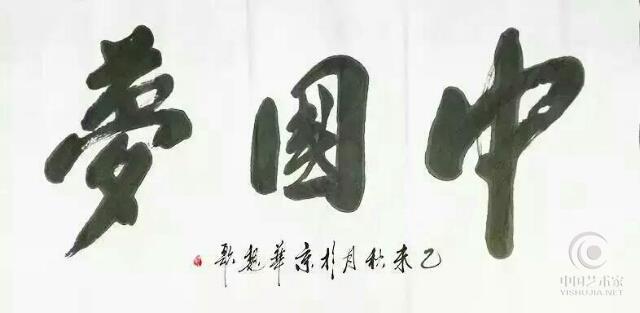 中國夢
乙未秋月於京華魏歌
中国艺术家
YISHUJIA.NET